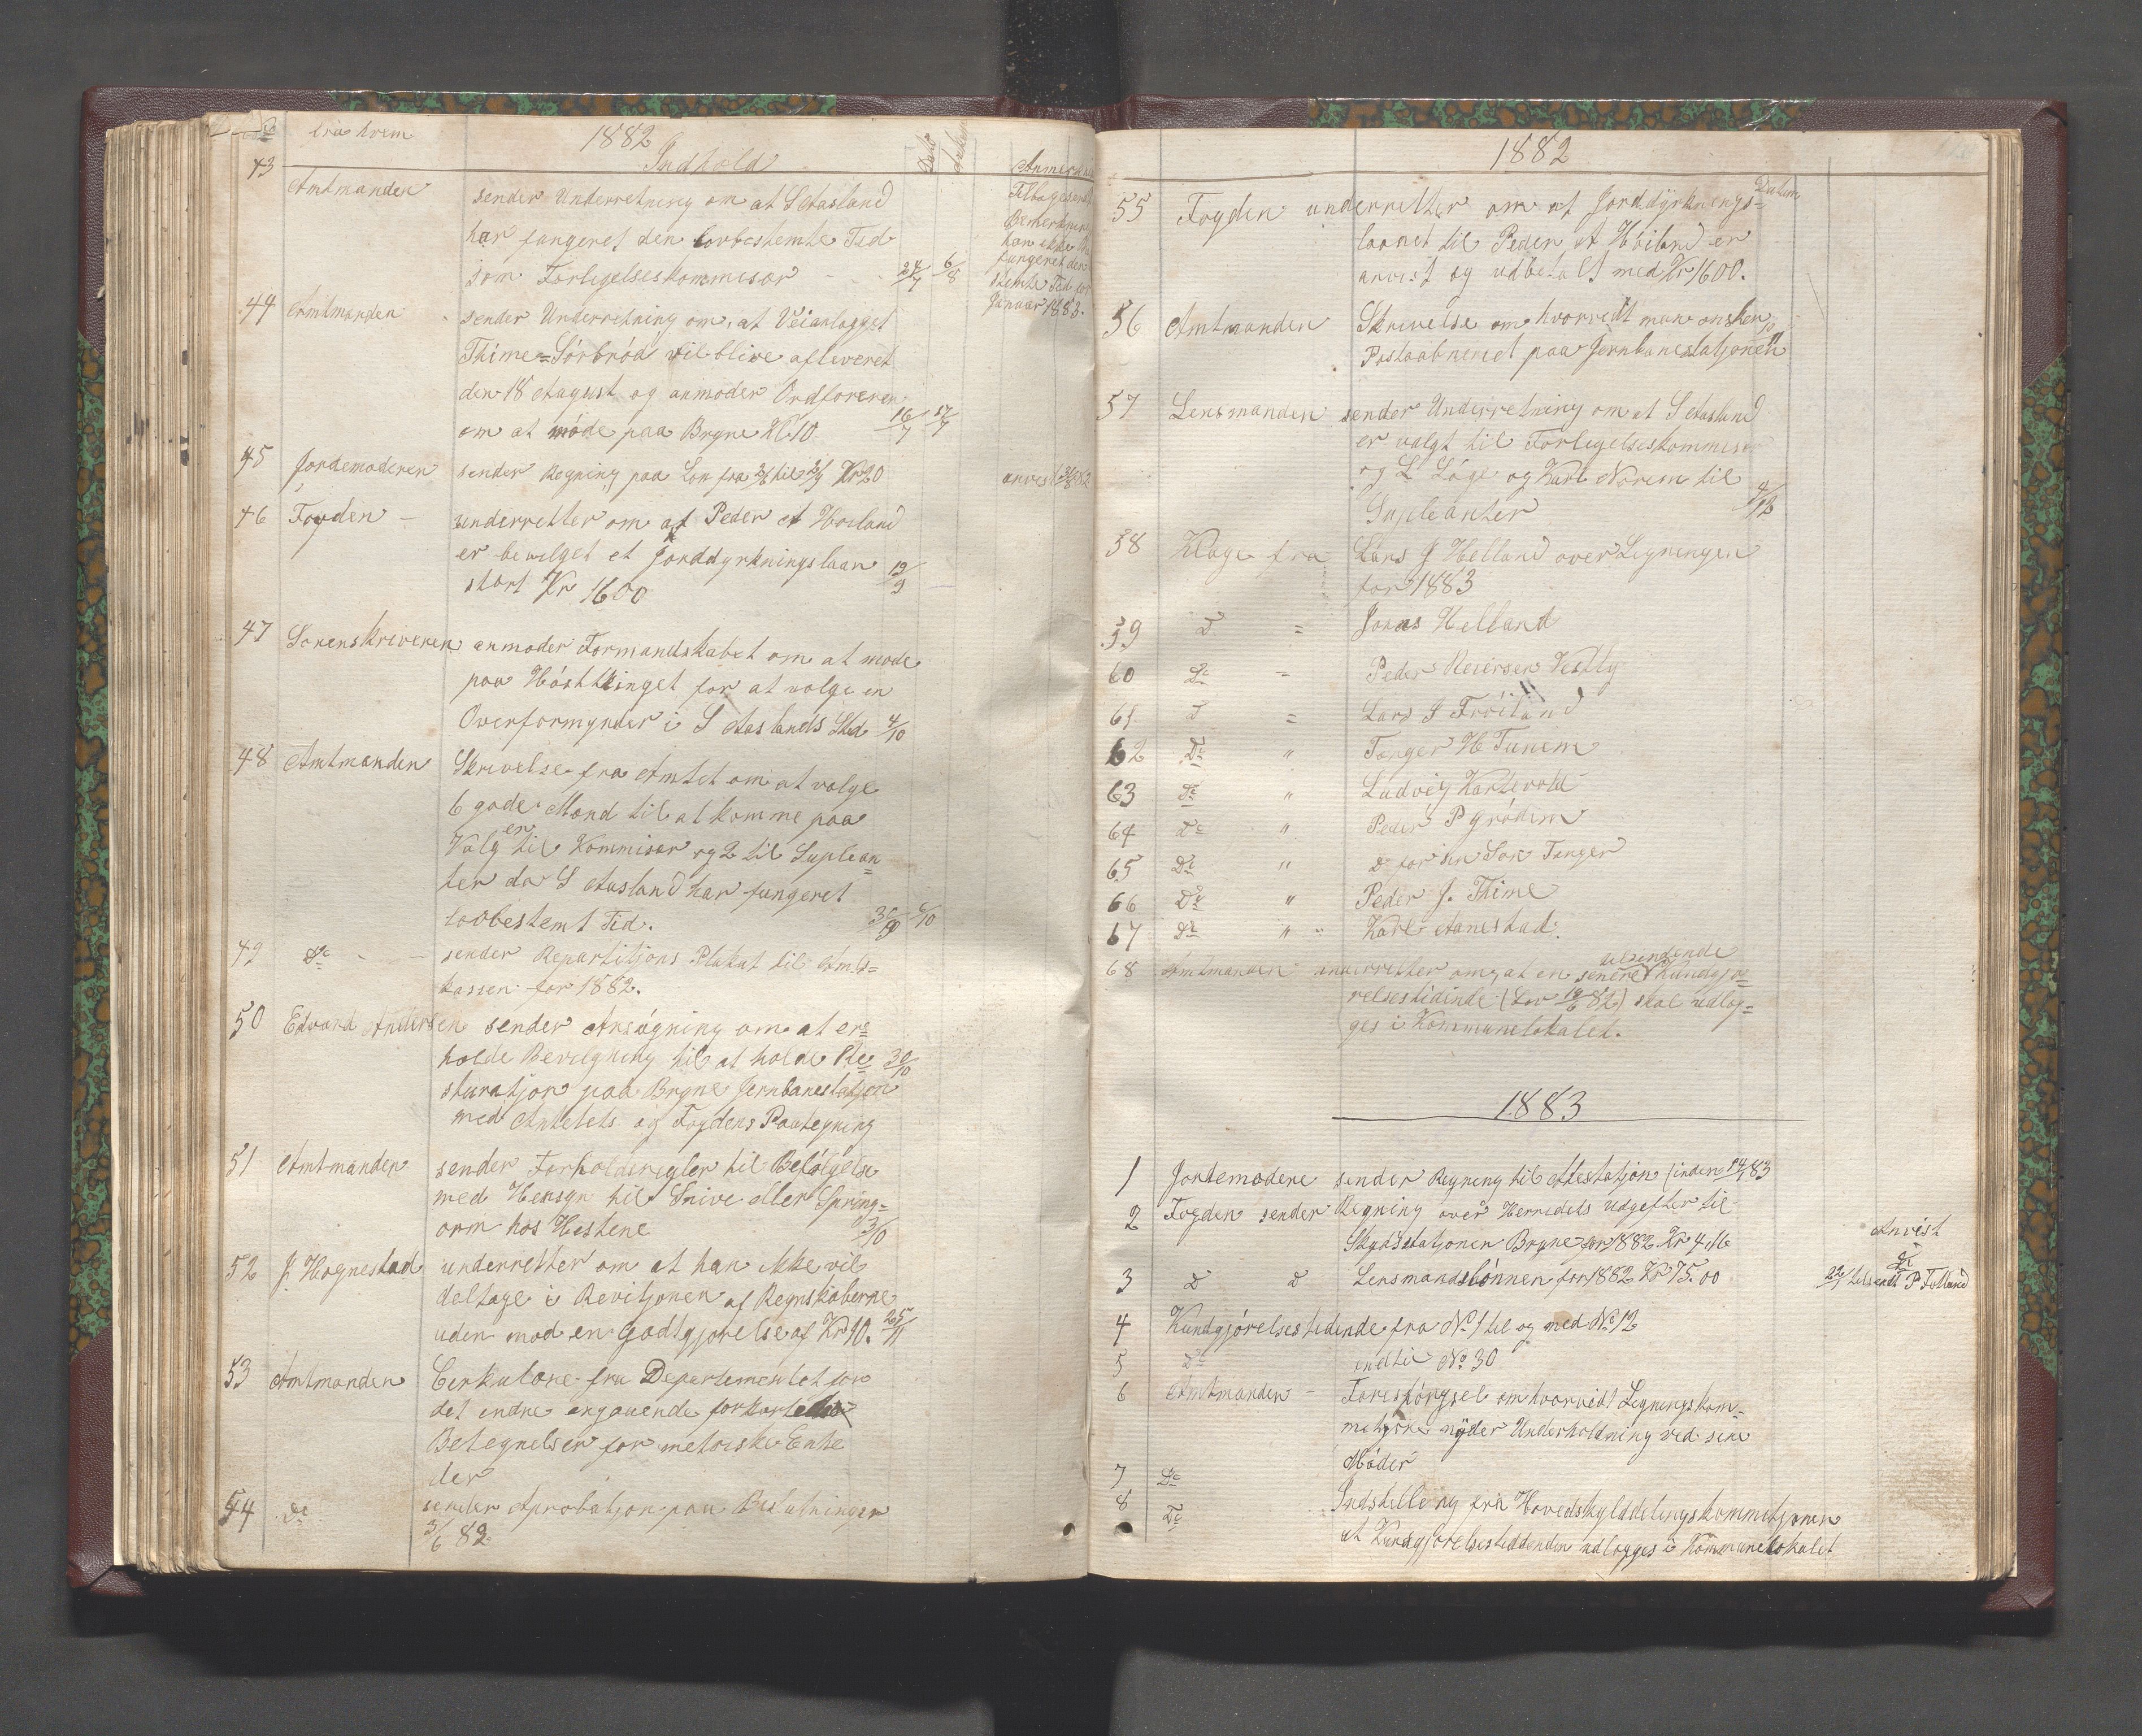 fra hvem
1882
Indhold
Dato
Anmerkni
43 Amtmanden sender Underretning om at S Aasland
har fungeret den lovbestemte Tid
som Forligelseskommisær 24/7 6/8
Tilbagesendt
Bemerkning
han ikke
fungeret den
stemte Tid før
Januar 1883.
44 Amtmanden sender Underretning om, at Veianlægget
Thime=Sörbröd vil blive afleveret
den 18 August og anmoder Ordföreren
om at möde paa Bryne Kl. 10 16/7 17/7
45 Jordemoderen sender Regning paa Løn fra til Kr 20
46 Fogden – underretter om at Peder A Hoiland
er bevilget et Jorddyrkningslaan
stort Kr 1600 12/9
47 Sorenskriveren anmoder Formandskabet om at mode
paa Hösttinget for at vælge en
Overformynder i S Aaslands Sted 4/10
48 Amtmanden Skrivelse fra Amtet om at vælge
6 gode Mænd til at komme paa
Valg en til Kommisær og 2 til Suplean
ter da S Aasland har fungeret
lovbestemt Tid.
49 Do – sender Repartitjons Plakat til Amts=
kassen for 1882.
50 Edvard Andersen sender Ansögning om at er=
holde Bevilgning til at holde Re= 30/10
sturatjon paa Bryne Jernbanestatjon
med Amtets og Fogdens Paategning
51 Amtmanden sender Forholdsregler til Befölgelse
med Hensyn til Snive eller Spring=
orm hos Hestene
52 J. Hognestad underretter om at han ikke vil
deltage i Revitjonen af Regnskaberne
uden mod en Godtgjorelse af Kr 10. 25/11
53 Amtmanden Cirkulære fra Departementet for
det indre angaaende forkortede
Betegnelser for metriske Enhe
der
54 do sender Aprobatjon paa Beslutninger
3/6 82
1882
Datum
55 Fogden underretter om at Jorddyrknings=
laanet til Peder A Höiland er
anvist og udbetalt med Kr 1600.
56 Amtmanden Skrivelse om hvorvidt man onsker
Postaabneriet paa Jernbanestatjonen
57 Lensmanden sender Underretning om at S Aasland
er valgt til Forligelseskommisær
og L Löge og Karl Norem til
Supleanter 4/12
58 Klage fra Lars J Helland over Ligningen
for 1883
59 D = Jonas Helland
60 Do = Peder Reiersen Vestly
61 D = Lars J Fröiland
62 Do " Tønger H Tunem
63 Do " Ludvig Kartevold
64 Do " Peder P Grödem
65 Do " Do for sin Søn Tønger
66 Do " Peder J. Thime
67 Do " Karl Aanestad.
68 Amtmanden underretter om, at en senere udsendende Kundgjø=
relsestidinde (Lov 82) skal udlæg=
ges i Kommunelokalet.
1883
1 Jordemodere sender Regning til Attestatjon (inden 14/1 83
2 Fogden sender Regning over Herredets Udgefter til
Skydsstatjonen Bryne for 1882. Kr 4,16
Anvist
3 D D Lensmandslønnen for 1882 Kr 75.00
Do
22/1 tilsendt P Folland
4 Kundgjörelsestidende fra No 1 til og med No 12
5 Do indtil No 30
6 Amtmanden – Forespörgsel om hvorvidt Ligningskom=
mitjonen nyder Underholdning ved sine
Möder
7 Do Indstilling fra Hovedskylddelingskommitjonen
8 Do at Kundgjörelsestiddenden udlægges i Kommunelokalet